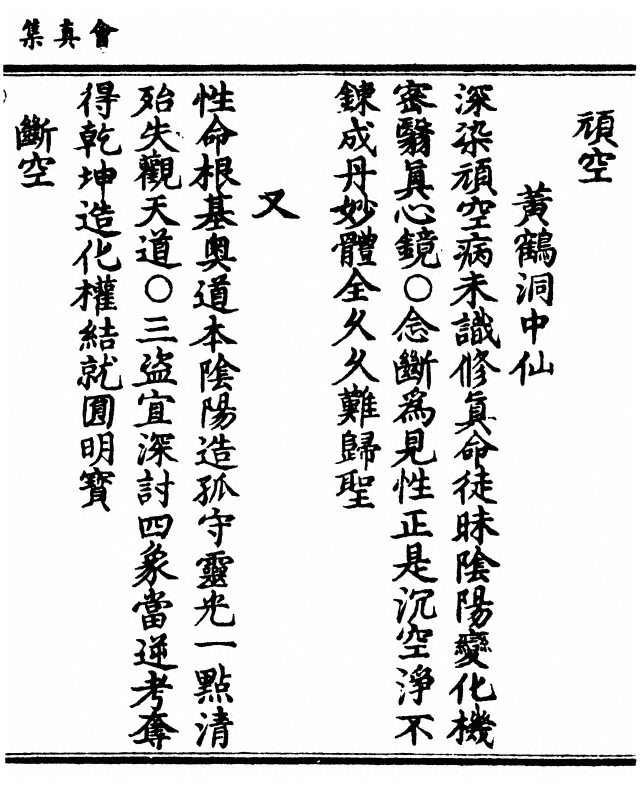 會真集
頑空
黃鶴洞中仙
深染頑空病未識修眞命徒昧陰陽變化機
密翳眞心鏡○念斷爲見性正是沉空淨不
鍊成丹妙體全久久難歸聖
又
性命根基奥道本陰陽造孤守靈光一點清
殆失觀天道○三盜宜深討四象當逆考奪
得乾坤造化權結就圓明寶
斷空